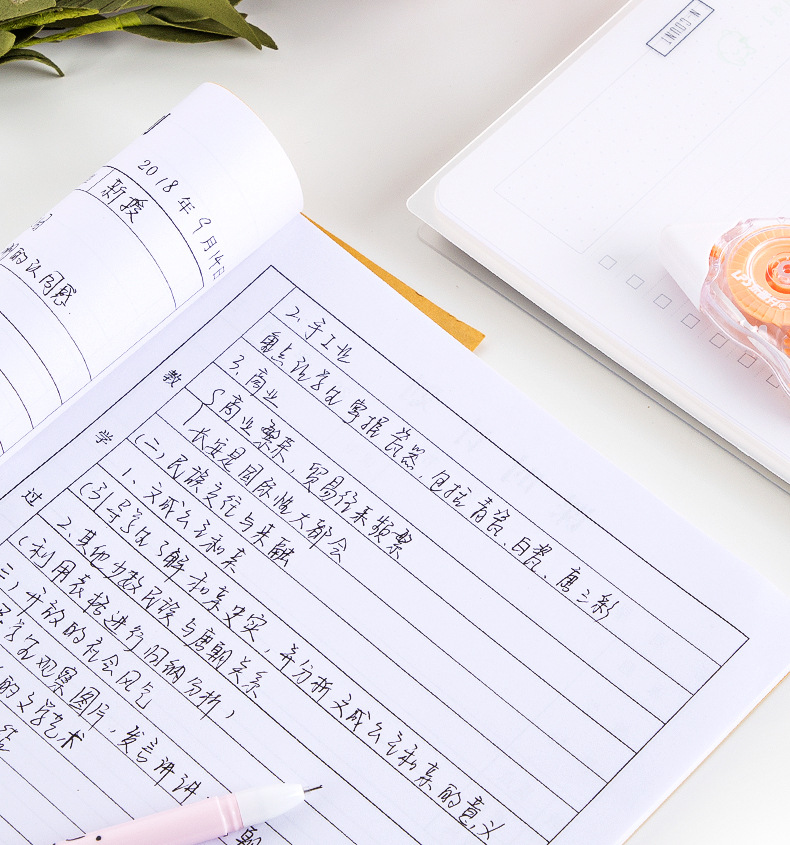 N·COUNT
2018年9月14日
新授
的认同感
教学过
2、手工业
重点让学生掌握瓷器,包括青瓷、白瓷、唐三彩
3、商业
商业繁荣,贸易往来频繁
长安是国际性大都会
(二)民族交往与交融
1、文成公主和亲
(引导学生了解和亲史实,并分析文成公主和亲的意义
2、其他少数民族与唐朝关系
(利用表格进行归纳分析)
三)开放的社会风气
学生观察图片,发言讲讲
的文学艺术